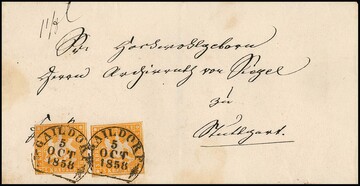 Sr. Hochwohlgeboren
Herrn Archivrath von
zu
Stuttgart.
GAILDORF
5
OCT
1858
GAILDORF
5
OCT
1858